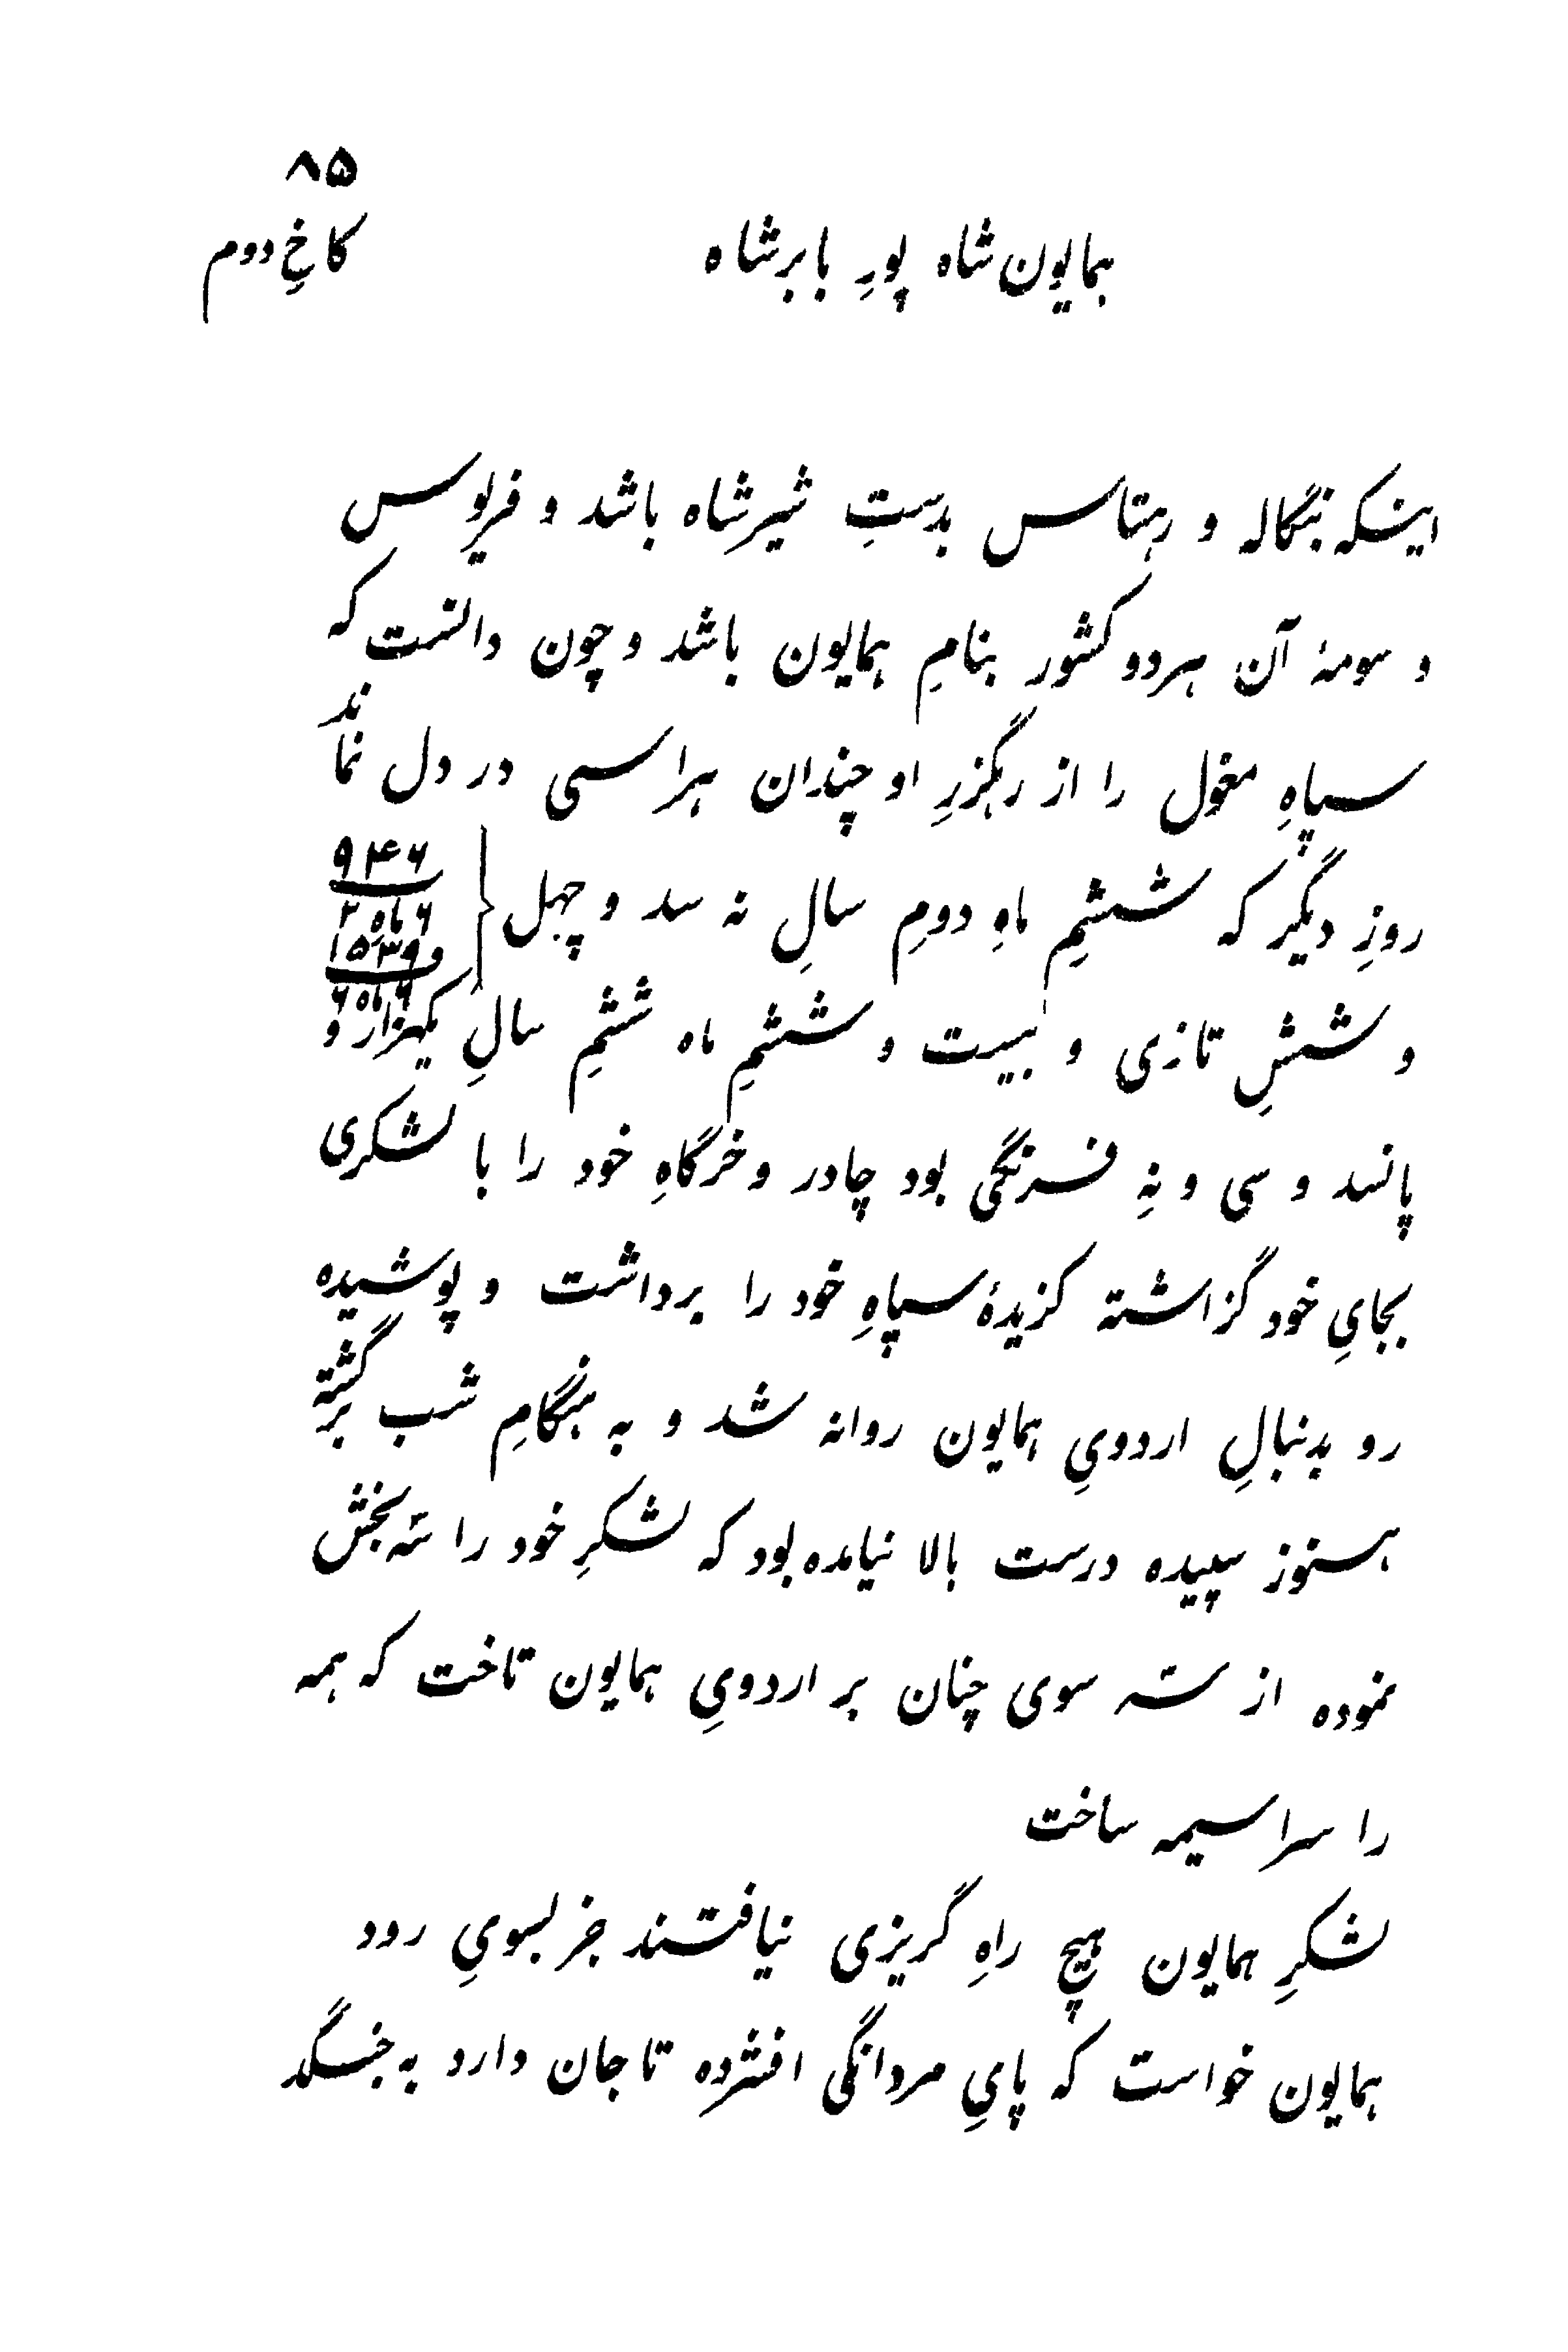 ۸۵
همایون شاه پورِ بابرشاه
کاخِ دوم
اینکه بنگاله و رهتاس بدستِ شیرشاه باشد و فریوس
و سومهٔ آن هردو کشور بنامِ همایون باشد و چون دانست که
سپاهِ مغول را از رهگزرِ او چندان هراسی در دل نماند
روزِ دیگر که ششمِ ماهِ دومِ سالِ نه سد و چهل
۹۴۶
۶ ماهِ ۲
و ۱۵۳۹
۶ ماه ۶
و ششِ تازی و بیست و ششمِ ماه ششمِ سالِ یکهزار و
پانسد و سی و نهِ فرنگی بود چادر و خرگاهِ خود را با لشکری
بجایِ خود گزاشته گزیدهٔ سپاهِ خود را برداشت و پوشیده
رو بدنبالِ اردویِ همایون روانه شد و به هنگامِ شب برگشته
هنوز سپیده درست بالا نیامده بود که لشکرِ خود را سه بخش
نموده از سه سوی چنان بر اردویِ همایون تاخت که همه
را سراسیمه ساخت
لشکرِ همایون هیچ راهِ گریزی نیافتند جز بسویِ رود
همایون خواست که پایِ مردانگی افشرده تا جان دارد به جنگد